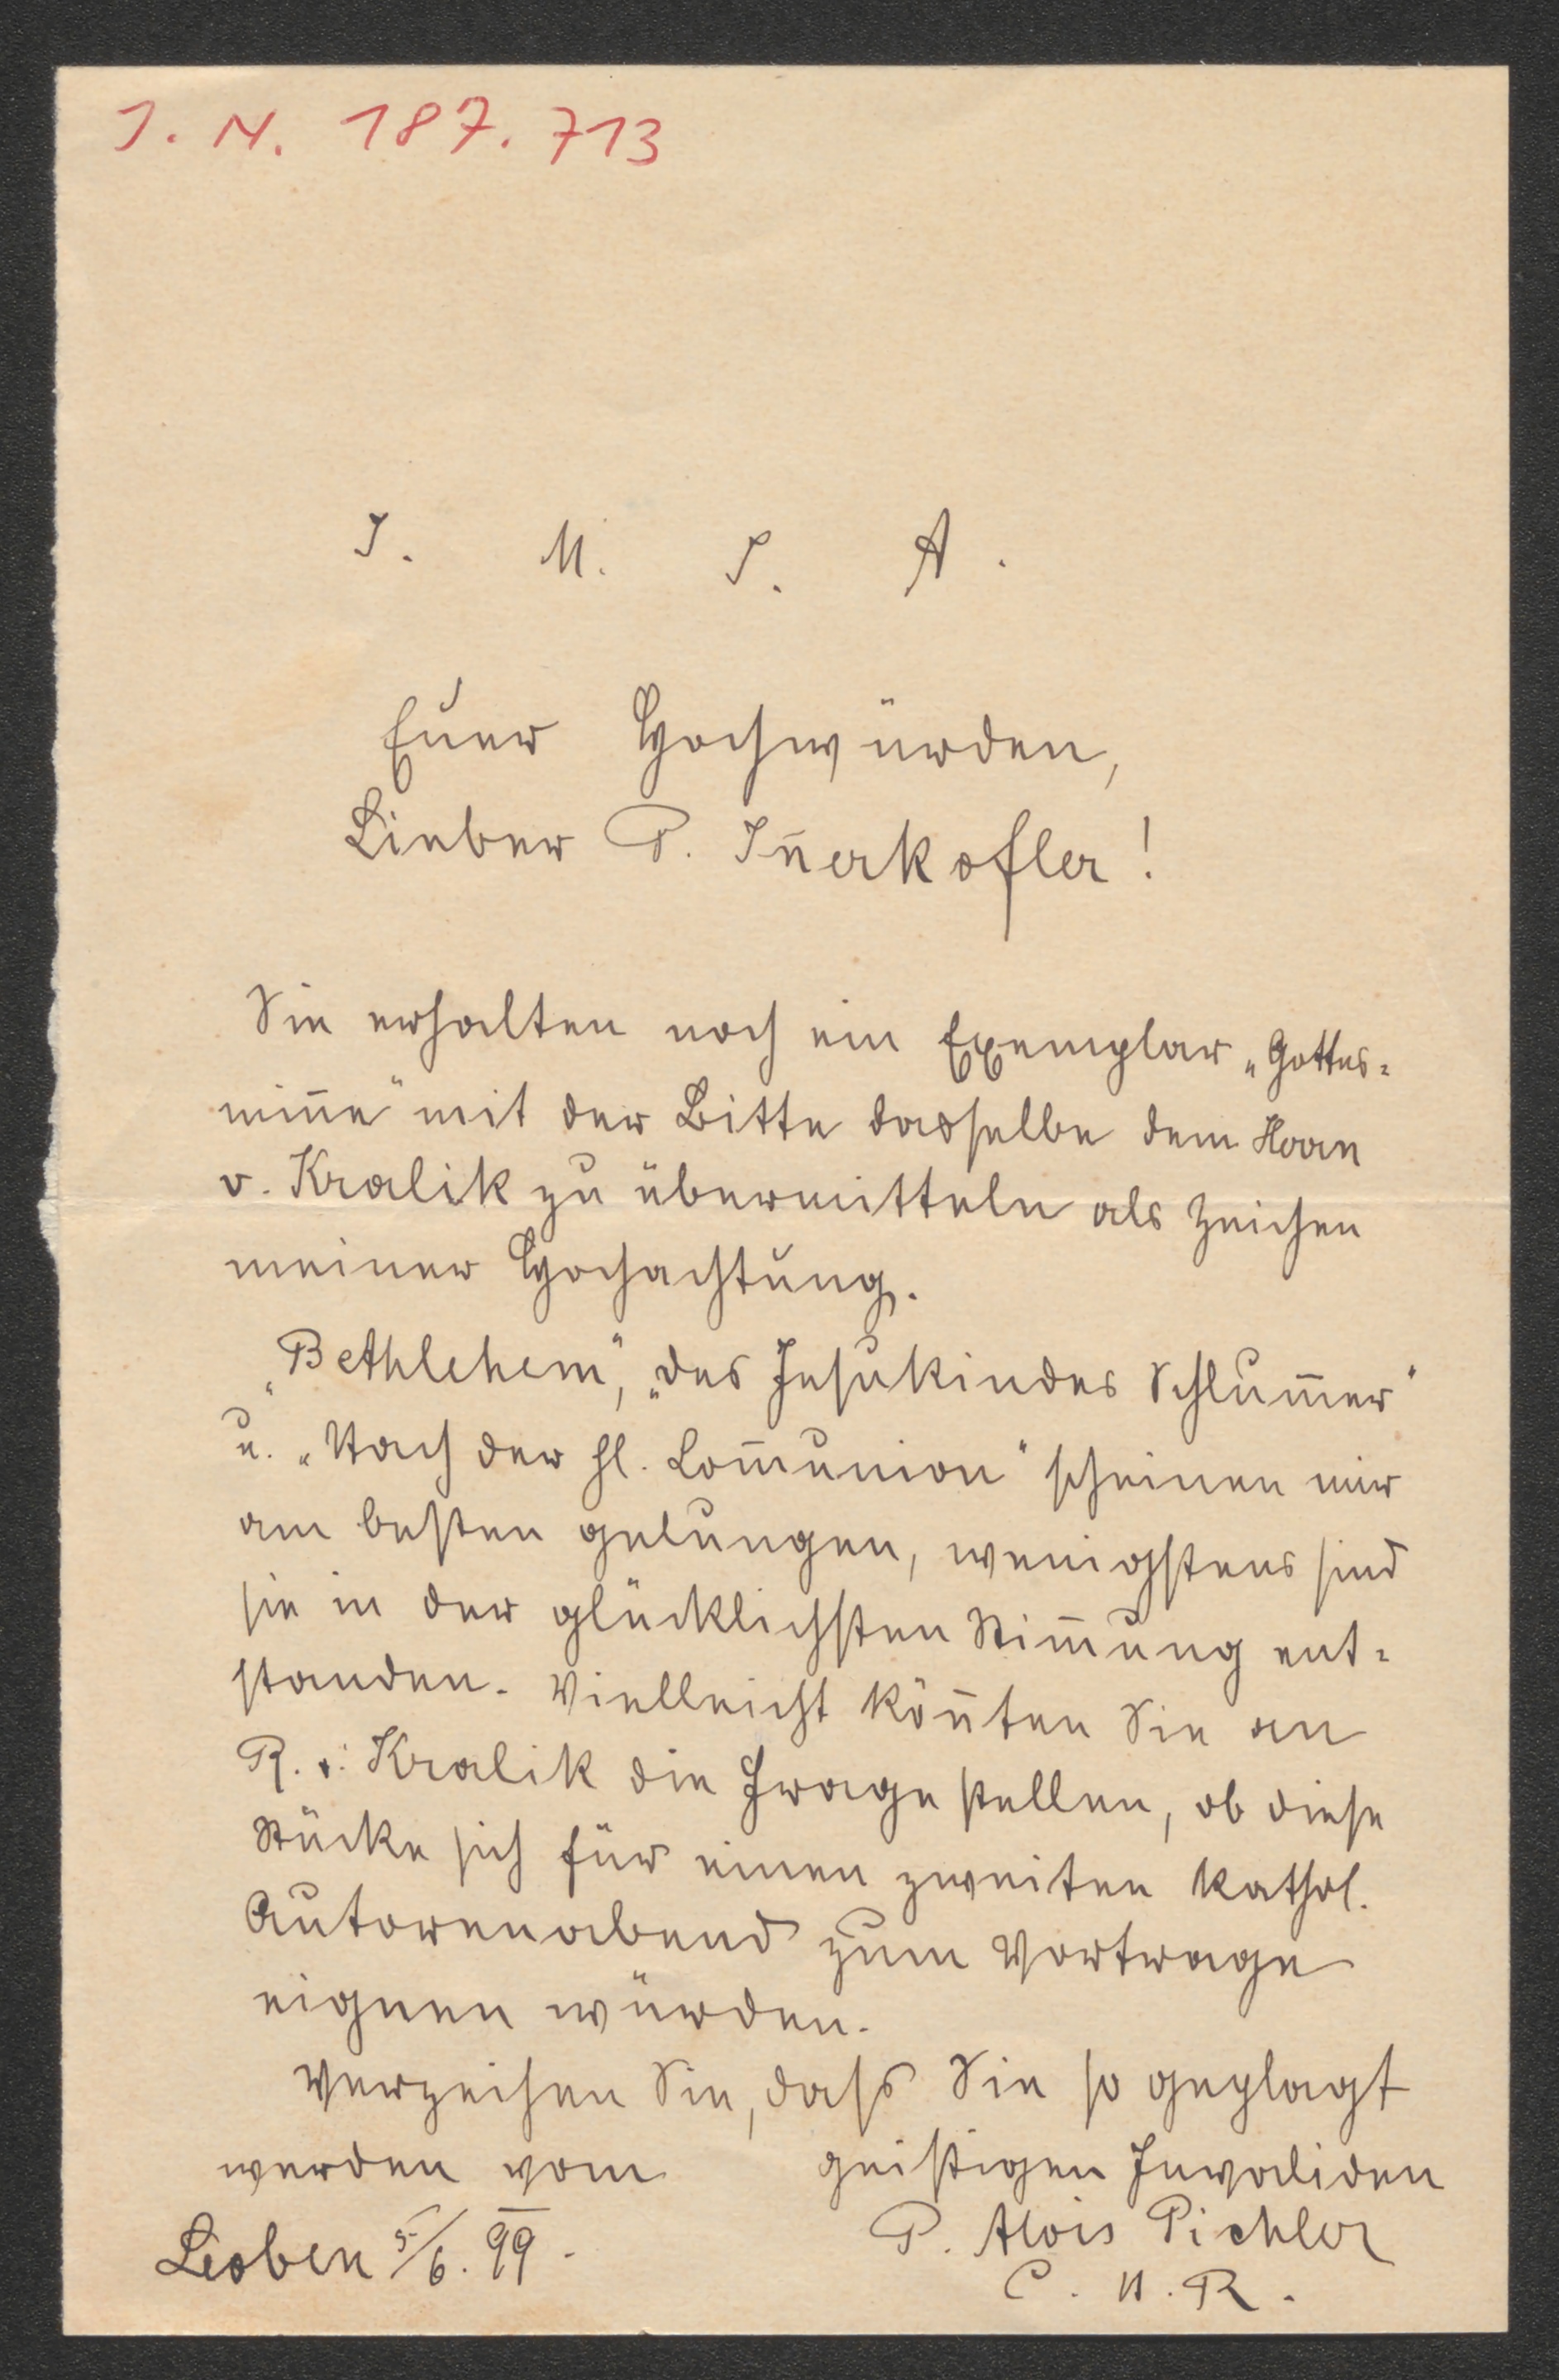 I. N. 187.713
J. M. J. A.
Euer Hochwürden,
Lieber P. Iñerkofler!
Sie erhalten noch ein Exemplar „Gottes=
miñe" mit der Bitte dasselbe dem Herrn
v. Kralik zu übermitteln als Zeichen
meiner Hochachtung.
„Bethlehem", „des Jesukindes Schlum̅er"
u. „Nach der hl. Com̅union" scheinen mir
am besten gelungen, wenigstens sind
sie in der glücklichsten Stim̅ung ent=
standen. Vielleicht köñten Sie an
R. v. Kralik die Frage stellen, ob diese
Stücke sich für einen zweiten kathol.
Autorenabend zum Vortrage
eignen würden.
Verzeihen Sie, dass Sie so geplagt
werden vom geistigen Invaliden
Leoben 5/6. 99. P. Alois Pichler
C. SS. R.